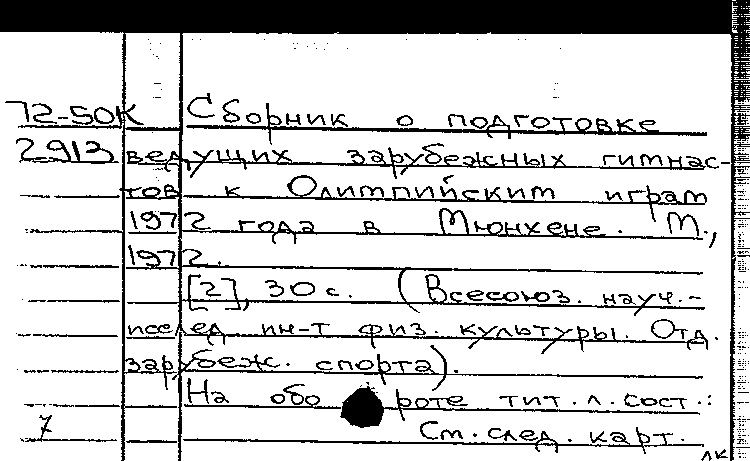 72-50К Сборник о подготовке
2913 ведущих зарубежных гимнас-
тов к Олимпийским играм
1972 года в Мюнхене. М.,
1972.
[2], 30 с. (Всесоюз. науч.-
исслед. ин-т физ. культуры. Отд.
зарубеж. спорта).
На обороте тит. л. сост.:
7 См. след. карт.
лк